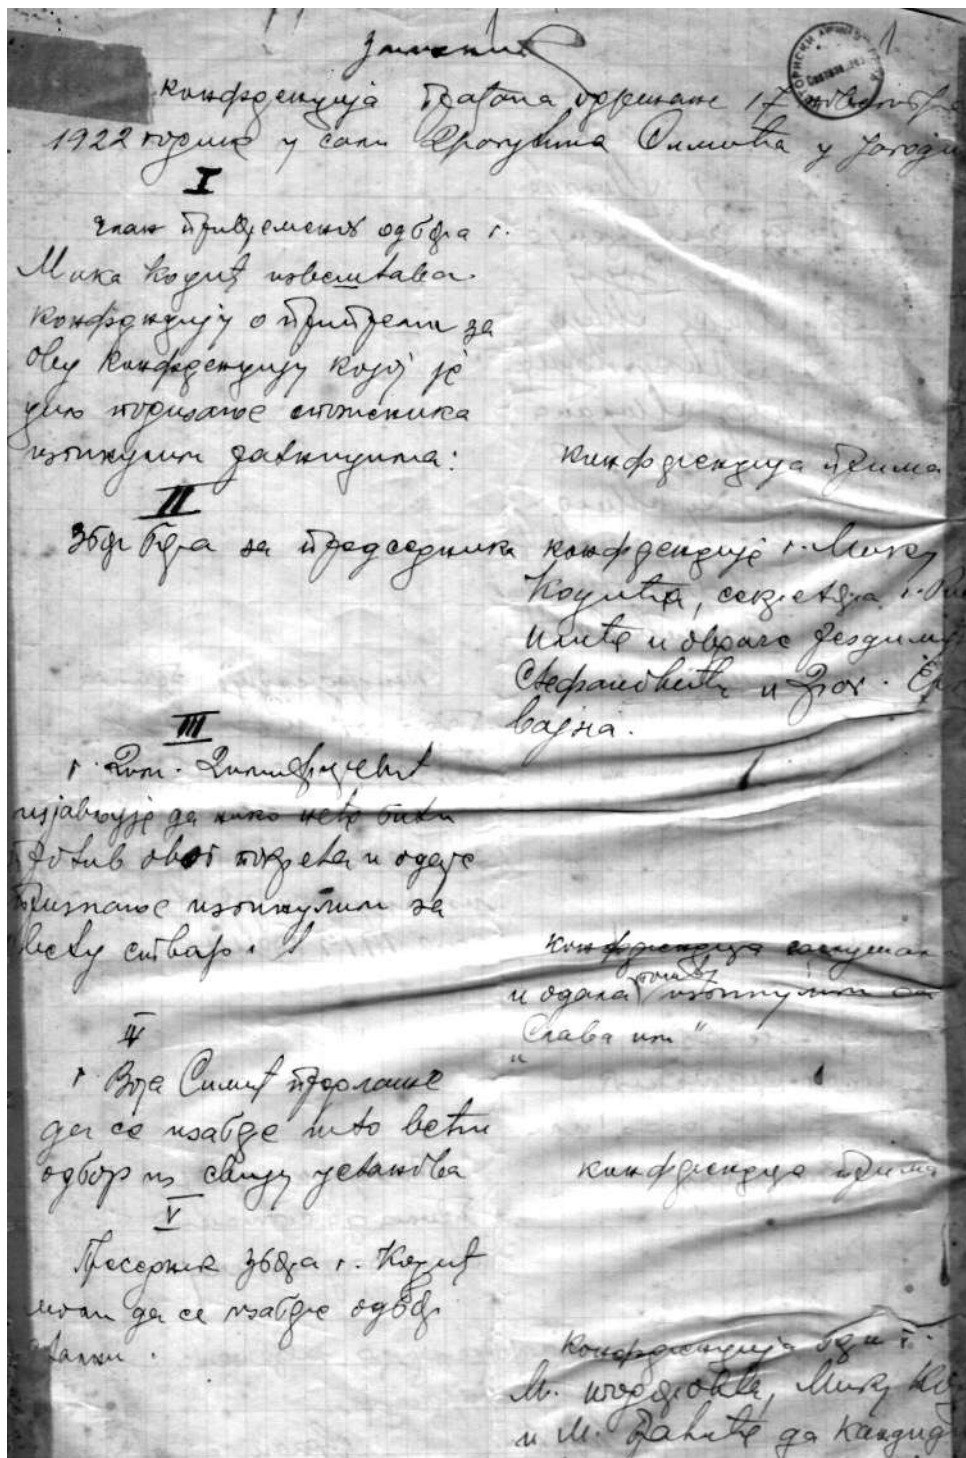 Записник
Конференција грађана одржане 17 новембра
1922 године у сали Драгутина у Јагоди
I
Члан привременог одбора г.
Мика Коцић извештава
конференцију о припреми за
ову конференцију којој је
циљ подизање споменика
изгинулим ратницима:
конференција прима
II
Збор бира за председника конференције г. Мику
Коцића, секретара г.
и обраче
Стефановића и Драг.
III
г. Дим.
изјављује да нико неће бити
против овог покрета и одаје
признање изгинулим за
ствар.
Конференција саслушала
и одала пошту изгинулим са
„Слава им"
IV
г. Воја Симић предлаже
да се изабере што већи
одбор из свију установа
конференција прима
V
Преседник збора г. Коцић
моли да се изабере одбор
Конференција бира г.
М. Мику
и М. да кандид